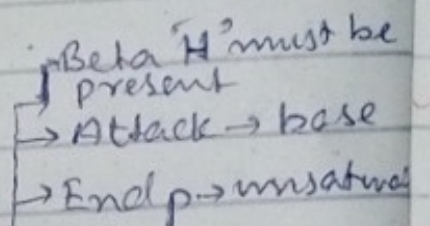 Beta "H" must be
present
→ Attack → base
→ End p → unsatura